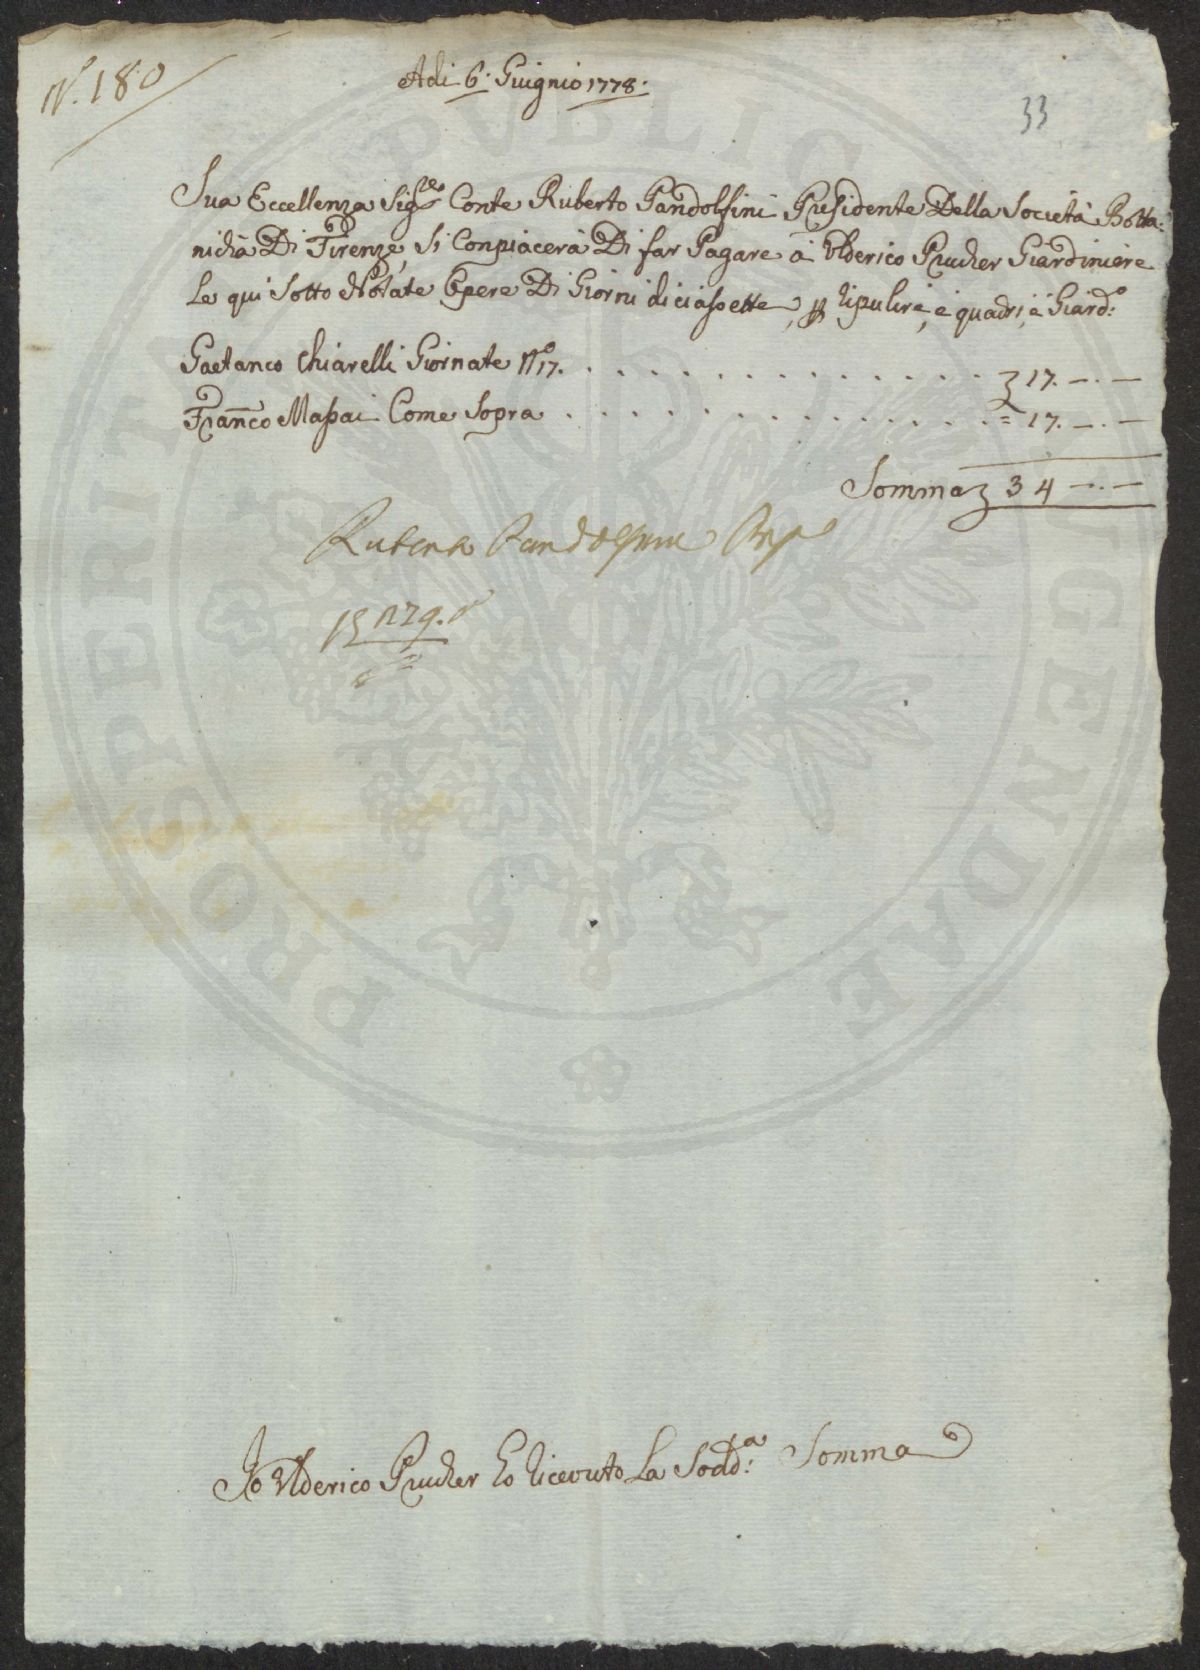 N. 180
Adi 6. Guignio 1778:
33
Sua Eccellenza Sig.re Conte Ruberto Pandolfini Presidente Della Società Botta:
nicha Di Firenze, Si Conpiacerà Di far Pagare à Ulderico Prucher Giardiniere
Le qui Sotto Notate Opere Di Giorni diciassette, p ripulire, e quadri, e Giard.o:
Gaetanco Chiarelli Giornate N.o 17. . . . . . . . . . . . . . . . 17. —.—
Franco Massai Come Sopra . . . . . . . . . . . . . . = 17. —.—
Somma 34 —.—
Ruberto Pandolfini
Io Ulderico Prucher ho ricevuto La Sodd.a: Somma
PUBLICAE
PROSPERITATI
AUGENDAE